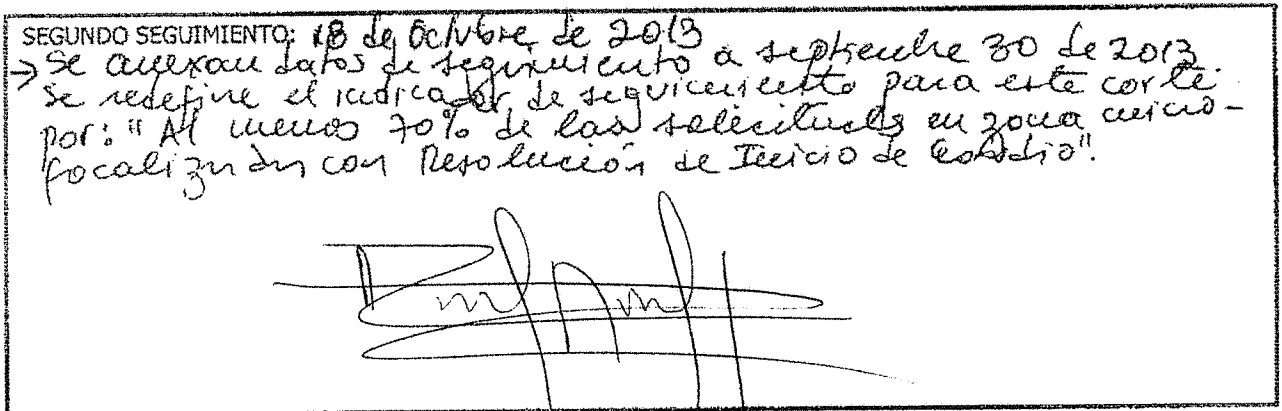 SEGUNDO SEGUIMIENTO: 18 de Octubre de 2013
→ Se anexan datos de seguimiento a septiembre 30 de 2013
Se redefine el indicador de seguimiento para este corte
por: "Al menos 70% de las solicitudes en zona micro-
focalizada con Resolución de Inicio de Estudio".